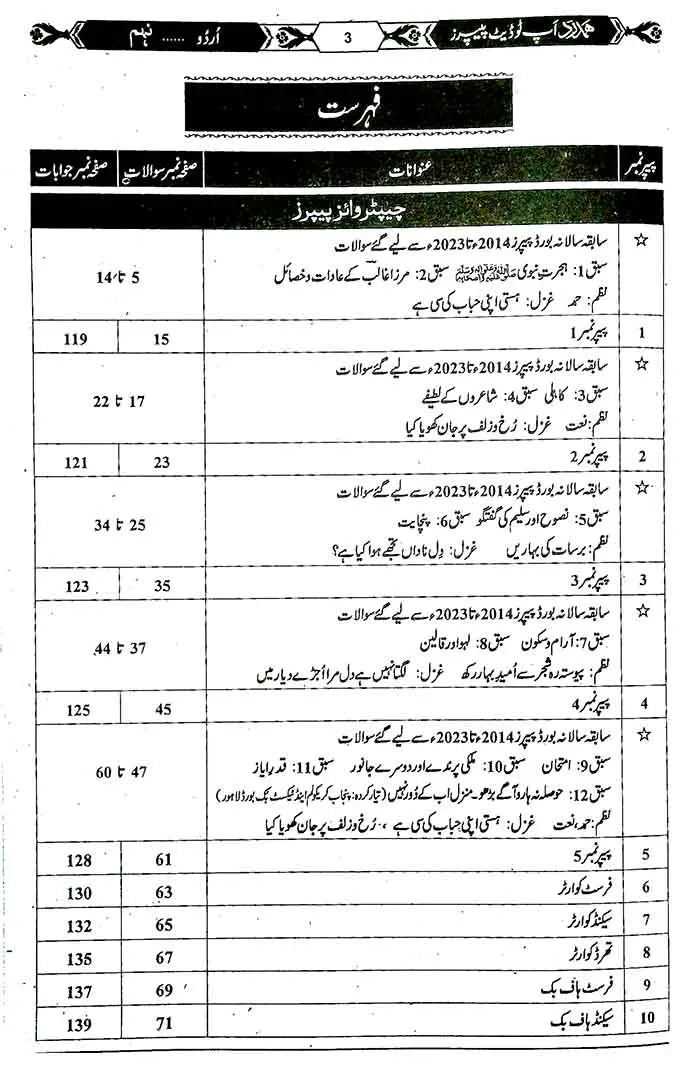 ہمدرد اَپ ٹو ڈیٹ پیپرز 3 اُردُو ...... نہم
فہرست
پیپر نمبر عنوانات صفحہ نمبر سوالات صفحہ نمبر جوابات
چیپٹر وائز پیپرز
☆ سابقہ سالانہ بورڈ پیپرز 2014ء تا 2023ء سے لیے گئے سوالات
سبق 1: ہجرتِ نبوی صلی اللہ علیہ وآلہ واصحابہ وسلم سبق 2: مرزا غالب کے عادات و خصائل 5 تا 14
نظم: حمد غزل: ہستی اپنی حباب کی سی ہے
1 پیپر نمبر 1 15 119
☆ سابقہ سالانہ بورڈ پیپرز 2014ء تا 2023ء سے لیے گئے سوالات
سبق 3: کاہلی سبق 4: شاعروں کے لطیفے 17 تا 22
نظم: نعت غزل: رُخ و زلف پر جان کھویا کیا
2 پیپر نمبر 2 23 121
☆ سابقہ سالانہ بورڈ پیپرز 2014ء تا 2023ء سے لیے گئے سوالات
سبق 5: نصوح اور سلیم کی گفتگو سبق 6: پنچایت 25 تا 34
نظم: برسات کی بہاریں غزل: دِل ناداں تجھے ہوا کیا ہے؟
3 پیپر نمبر 3 35 123
☆ سابقہ سالانہ بورڈ پیپرز 2014ء تا 2023ء سے لیے گئے سوالات
سبق 7: آرام و سکون سبق 8: لہو اور قالین 37 تا 44
نظم: پیوستہ رہ شجر سے اُمیدِ بہار رکھ غزل: لگتا نہیں ہے دل مرا اُجڑے دیار میں
4 پیپر نمبر 4 45 125
☆ سابقہ سالانہ بورڈ پیپرز 2014ء تا 2023ء سے لیے گئے سوالات
سبق 9: امتحان سبق 10: ملکی پرندے اور دوسرے جانور سبق 11: قدرِ ایاز 47 تا 60
سبق 12: حوصلہ نہ ہارو آگے بڑھو۔ منزل اب کے دُور نہیں (تیار کردہ: پنجاب کریکولم اینڈ ٹیکسٹ بک بورڈ لاہور)
نظم: حمد، نعت غزل: ہستی اپنی حباب کی سی ہے ، رُخ و زلف پر جان کھویا کیا
5 پیپر نمبر 5 61 128
6 فرسٹ کوارٹر 63 130
7 سیکنڈ کوارٹر 65 132
8 تھرڈ کوارٹر 67 135
9 فرسٹ ہاف بک 69 137
10 سیکنڈ ہاف بک 71 139